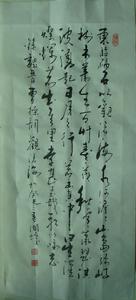 東臨碣石以觀滄海水何澹澹山島竦峙
樹木叢生百草豐茂秋風蕭瑟洪
波湧起日月之行若出其中星漢
燦爛若出其里幸甚至哉歌以詠志
曹操詞觀滄海